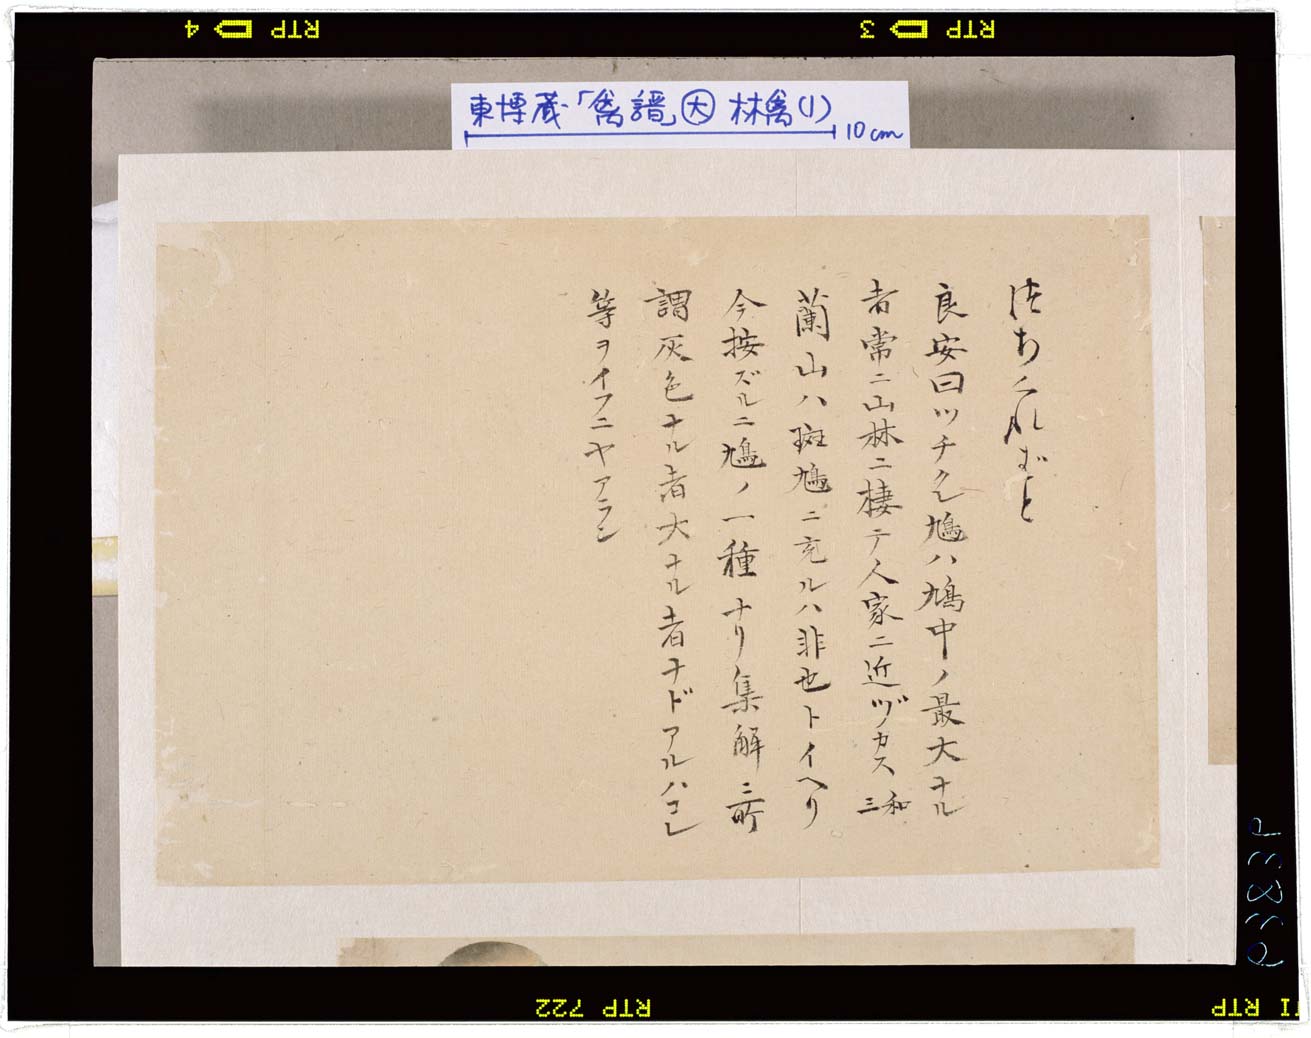 RTP 4
RTP 3
東博蔵「禽譜」㊅ 林禽(1)
10cm
つちくればと
良安曰ツチクレ鳩ハ鳩中ノ最大ナル
者常ニ山林ニ棲テ人家ニ近ヅカス 和三
蘭山ハ斑鳩ニ充ルハ非也トイヘリ
今按ズルニ鳩ノ一種ナリ集解ニ所
謂灰色ナル者大ナル者ナドアルハコレ
等ヲイフニヤアラン
RTP 722
RTP